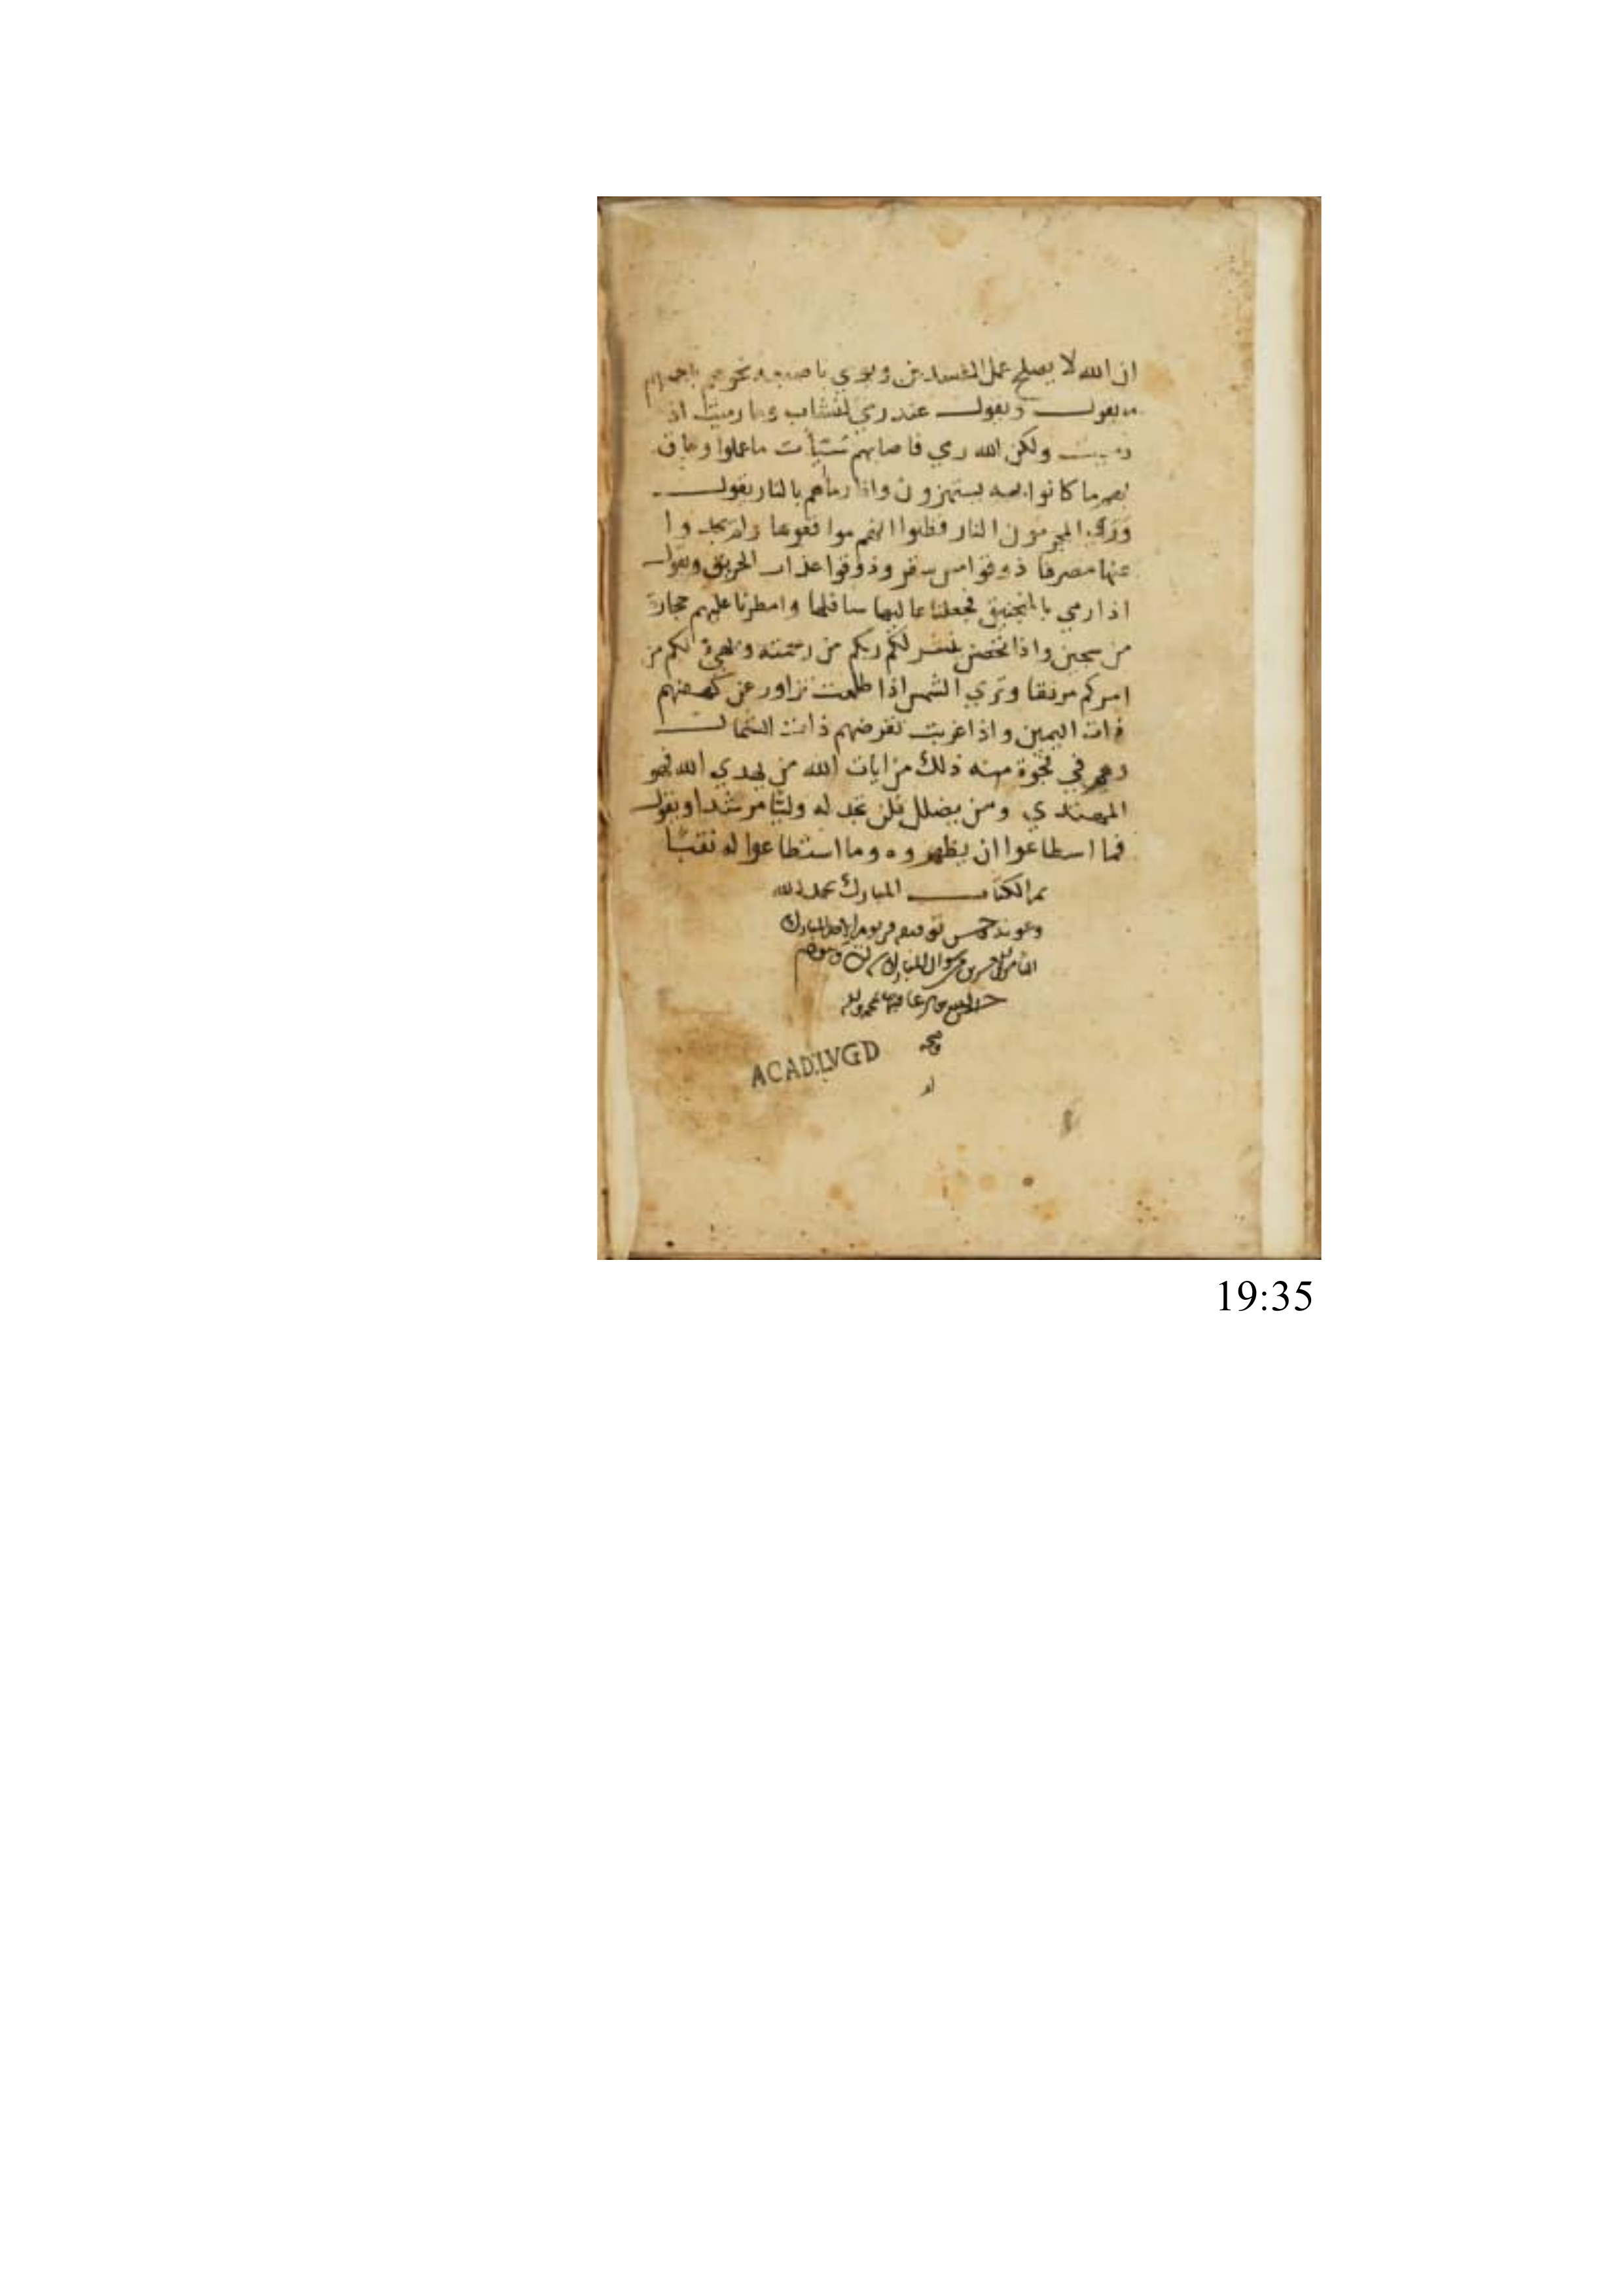 ان الله لا يصلح عمل المفسدين ويومي باصبعه نحوهم
يقول ويقول عند رمي النشاب وما رميت اذ
رميت ولكن الله رمي فاصابهم سيأت ما عملوا وحاق
بهم ما كانوا به يستهزون واذا رماهم بالنار يقول
وراي المجرمون النار فظنوا انهم مواقعوها ولم يجدوا
عنها مصرفا ذوقوا مس سقر وذوقوا عذاب الحريق ويقول
اذا رمي بالمنجنيق فجعلنا عاليها سافلها وامطرنا عليهم حجارة
من سجين واذا تحصن ينشر لكم ربكم من رحمته ويهيئ لكم من
امركم مرفقا وتري الشمس اذا طلعت تزاور عن كهفهم
ذات اليمين واذا غربت تقرضهم ذات الشمال
وهم في فجوة منه ذلك من ايات الله من يهدي الله فهو
المهتدي ومن يضلل فلن تجد له وليا مرشدا ويقول
فما اسطاعوا ان يظهروه وما استطاعوا له نقبا
تم الكتاب المبارك بحمد الله
وعونه وحسن توفيقه في يوم الاحد المبارك
شوال المبارك
ACAD.LVGD
19:35